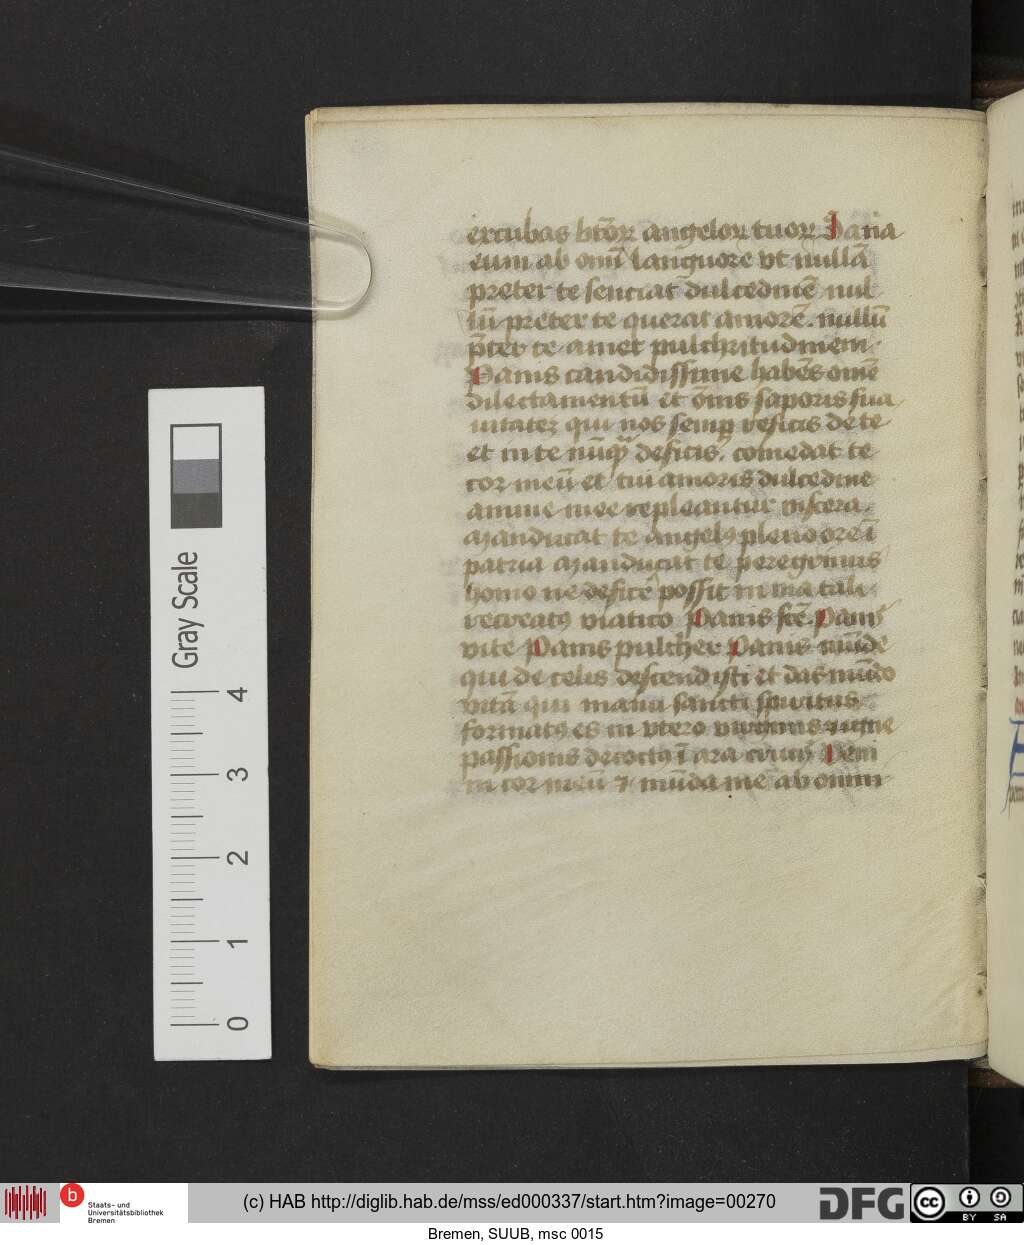 excubas btōꝝ angeloꝝ tuoꝝ Sana
eum ab omī languore vt nullā
preter te senciat dulcedinē nul
lū preter te querat amorē. nullū
p̄ter te amet pulchritudinem.
Panis candidissime habēs omē
dilectamentū et om̄is saporis sua
uitatez qui nos semꝑ reficis de te
et in te nūqᷓ deficis. comedat te
cor meū et tui amoris dulcedine
anime mee repleantur viscera.
Manducat te angelꝰ pleno ore ī
patria Manducat te peregrinus
homo ne deficere possit in via tali
recreatꝰ viatico Panis scē Panis
vite Panis pulcher Panis mūde
qui de celis descendisti et das mūdo
vitā qui manu sancti spiritus
formatꝰ es in vtero virginis igne
passionis decoctꝰ ī ara crucis Veni
in cor meū ⁊ mūda me ab omni
Gray Scale
4
3
2
1
0
b
Staats- und
Universitätsbibliothek
Bremen
(c) HAB http://diglib.hab.de/mss/ed000337/start.htm?image=00270
DFG
cc
BY SA
Bremen, SUUB, msc 0015